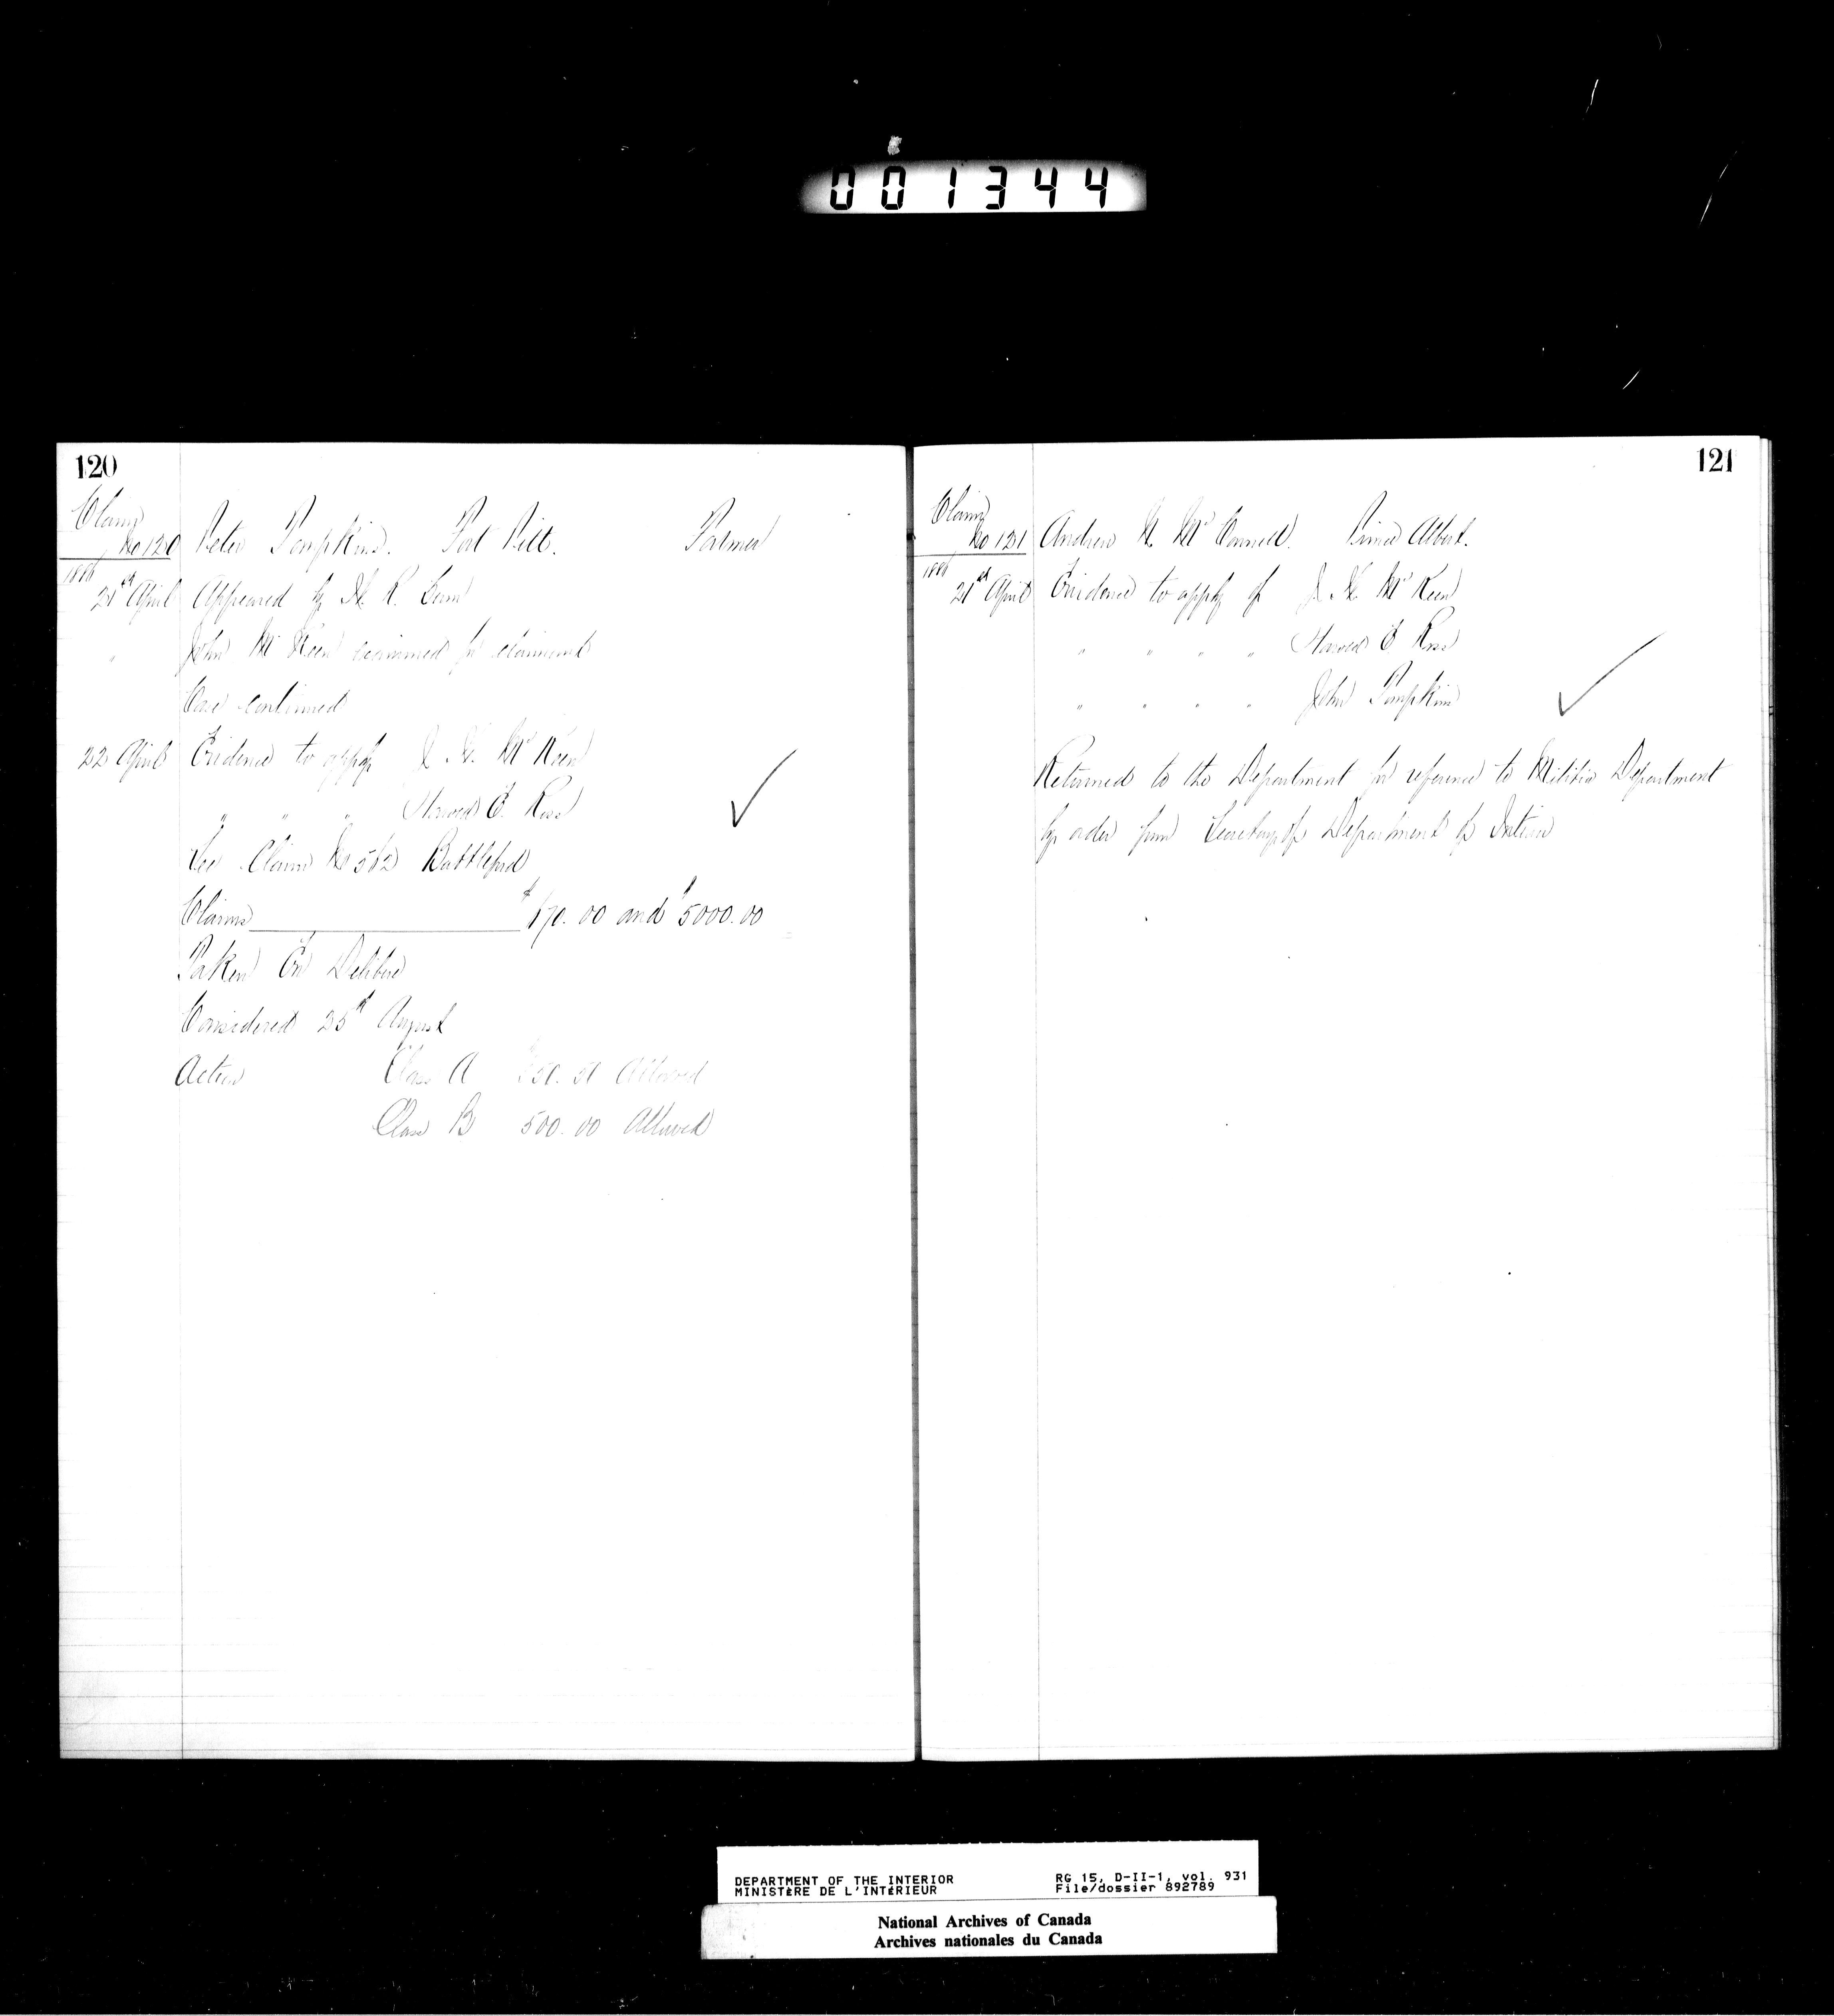 001344
120
Claim
No 120 Peter Tompkins. Fort Pitt. Farmer
1886
21st April Appeared by
" John Mc Keen examined for claimant
Case continued
22 April Evidence to apply of J. H. Mc Keen
" " " Harold E. Ross
See Claim No 562 Battleford
Claims $170.00 and $5000.00
Taken En Delibéré
Considered 25th August
Action Class A Allowed
Class B 500.00 Allowed
121
Claim
No 121 Andrew Mc Connell. Prince Albert.
1886
21st April Evidence to apply of J. H. Mc Keen
" " " " Harold E. Ross
" " " " John Tompkins
Returned to the Department for reference to Militia Department
by order from Secretary of Department of Interior
DEPARTMENT OF THE INTERIOR RG 15, D-II-1, vol. 931
MINISTÈRE DE L'INTÉRIEUR File/dossier 892789
National Archives of Canada
Archives nationales du Canada